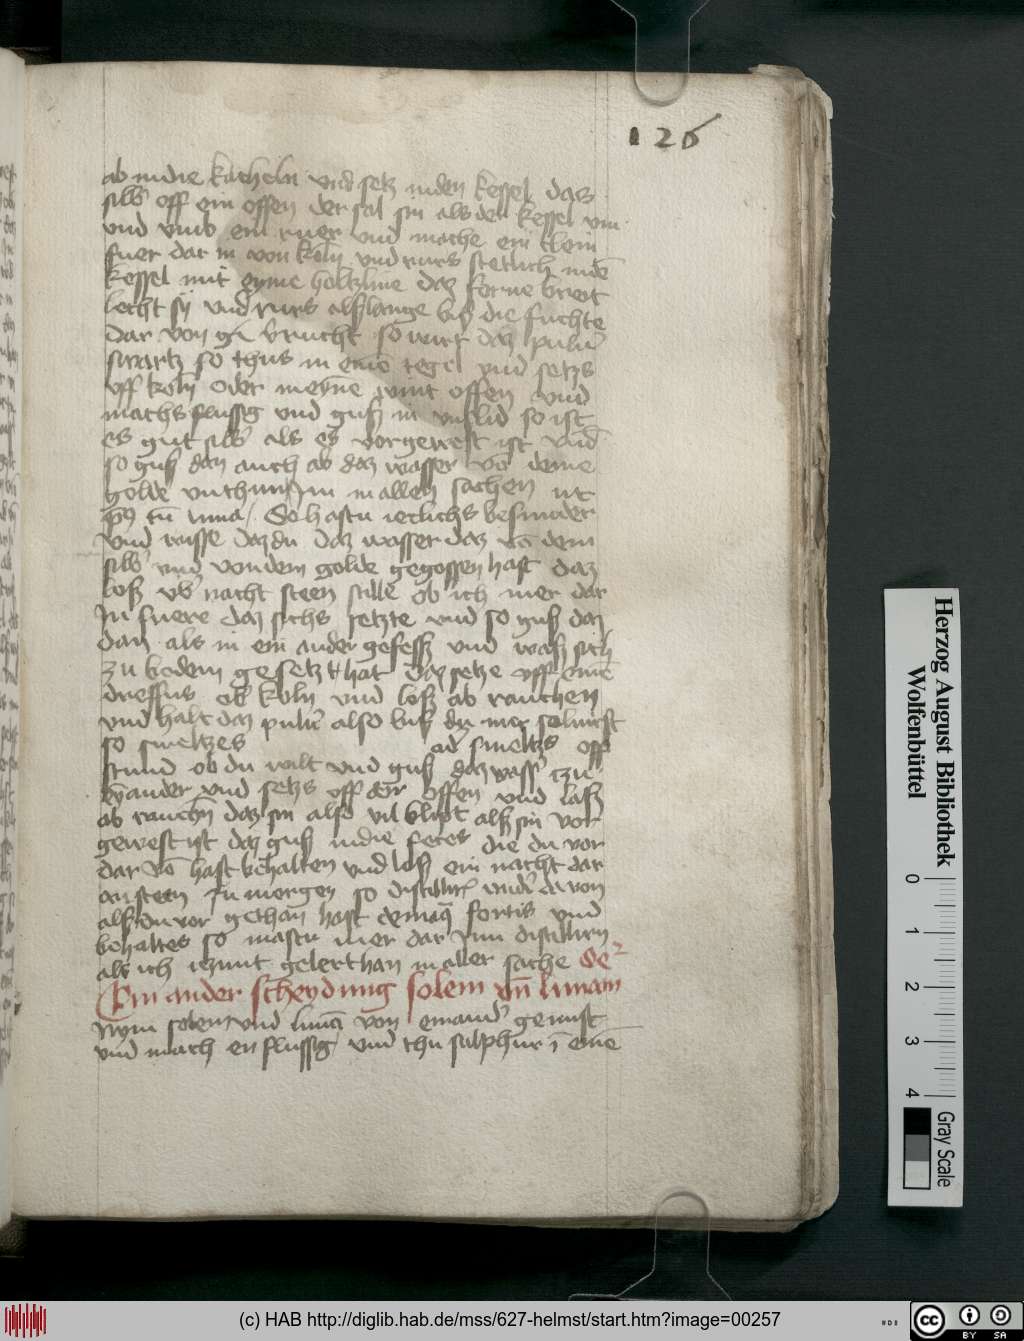 126
ab in die kacheln vnd setz in den kessel das
silbr off ein offen der sal sin als der kessel vm
vnd vmb ein ruer vnd mache ein clein
fuer dar in von koln vnd rurs stetlich in dē
kessel mit eyme holtzline daz forne breit
lecht sy vnd rurs alsslange biss die fuchte
dar von gē brucht so wirt daz puluer
swartz so thus in eine tegel vnd setzs
vff koln oder in eyne wint offen vnd
machs flussig vnd guss in vnslid so ist
es gut silbr als es vor gewest ist vnd
so guss dan auch ab daz wasser vō deme
golde in allen sachen
So hastu ietlichs besunder
vnd daz du daz wasser daz vō dem
silbr vnd von dem golde gegossen hast daz
loss vbr nacht steen stille ob ich mer dar
In fuere daz sichs setzte vnd so guss daz
dan als in ein ander gefess vnd wass sich
zu bodem gesetzt hat daz setze vff eine
dreffus obr koln vnd loss ab rauchen
vnd halt daz puluer also biss du mer
so smeltzes ad smeltzs off
stund ob du wilt vnd guss daz wassr tzu
eynander vnd setzs vff den offen vnd lass
ab rauchn daz sin also vil blibt alss sin vor
gewest ist daz guss in die feces die du vor
dar vō hast behalten vnd loss ein nacht dar
an steen In morgen so distillir widr da von
alss du vor gethan hast aqua fortis vnd
behaltes so mastu mer dar Inn distillirn
als ich itzunt gelert han in aller sache
Ein ander scheydung solem vn̄ lunam
Nym solem vnd lunā von einandr gemist
vnd mach en flussig vnd thu sulphur ī eine
Herzog August Bibliothek
Wolfenbüttel
0 1 2 3 4
Gray Scale
(c) HAB http://diglib.hab.de/mss/627-helmst/start.htm?image=00257
cc BY SA